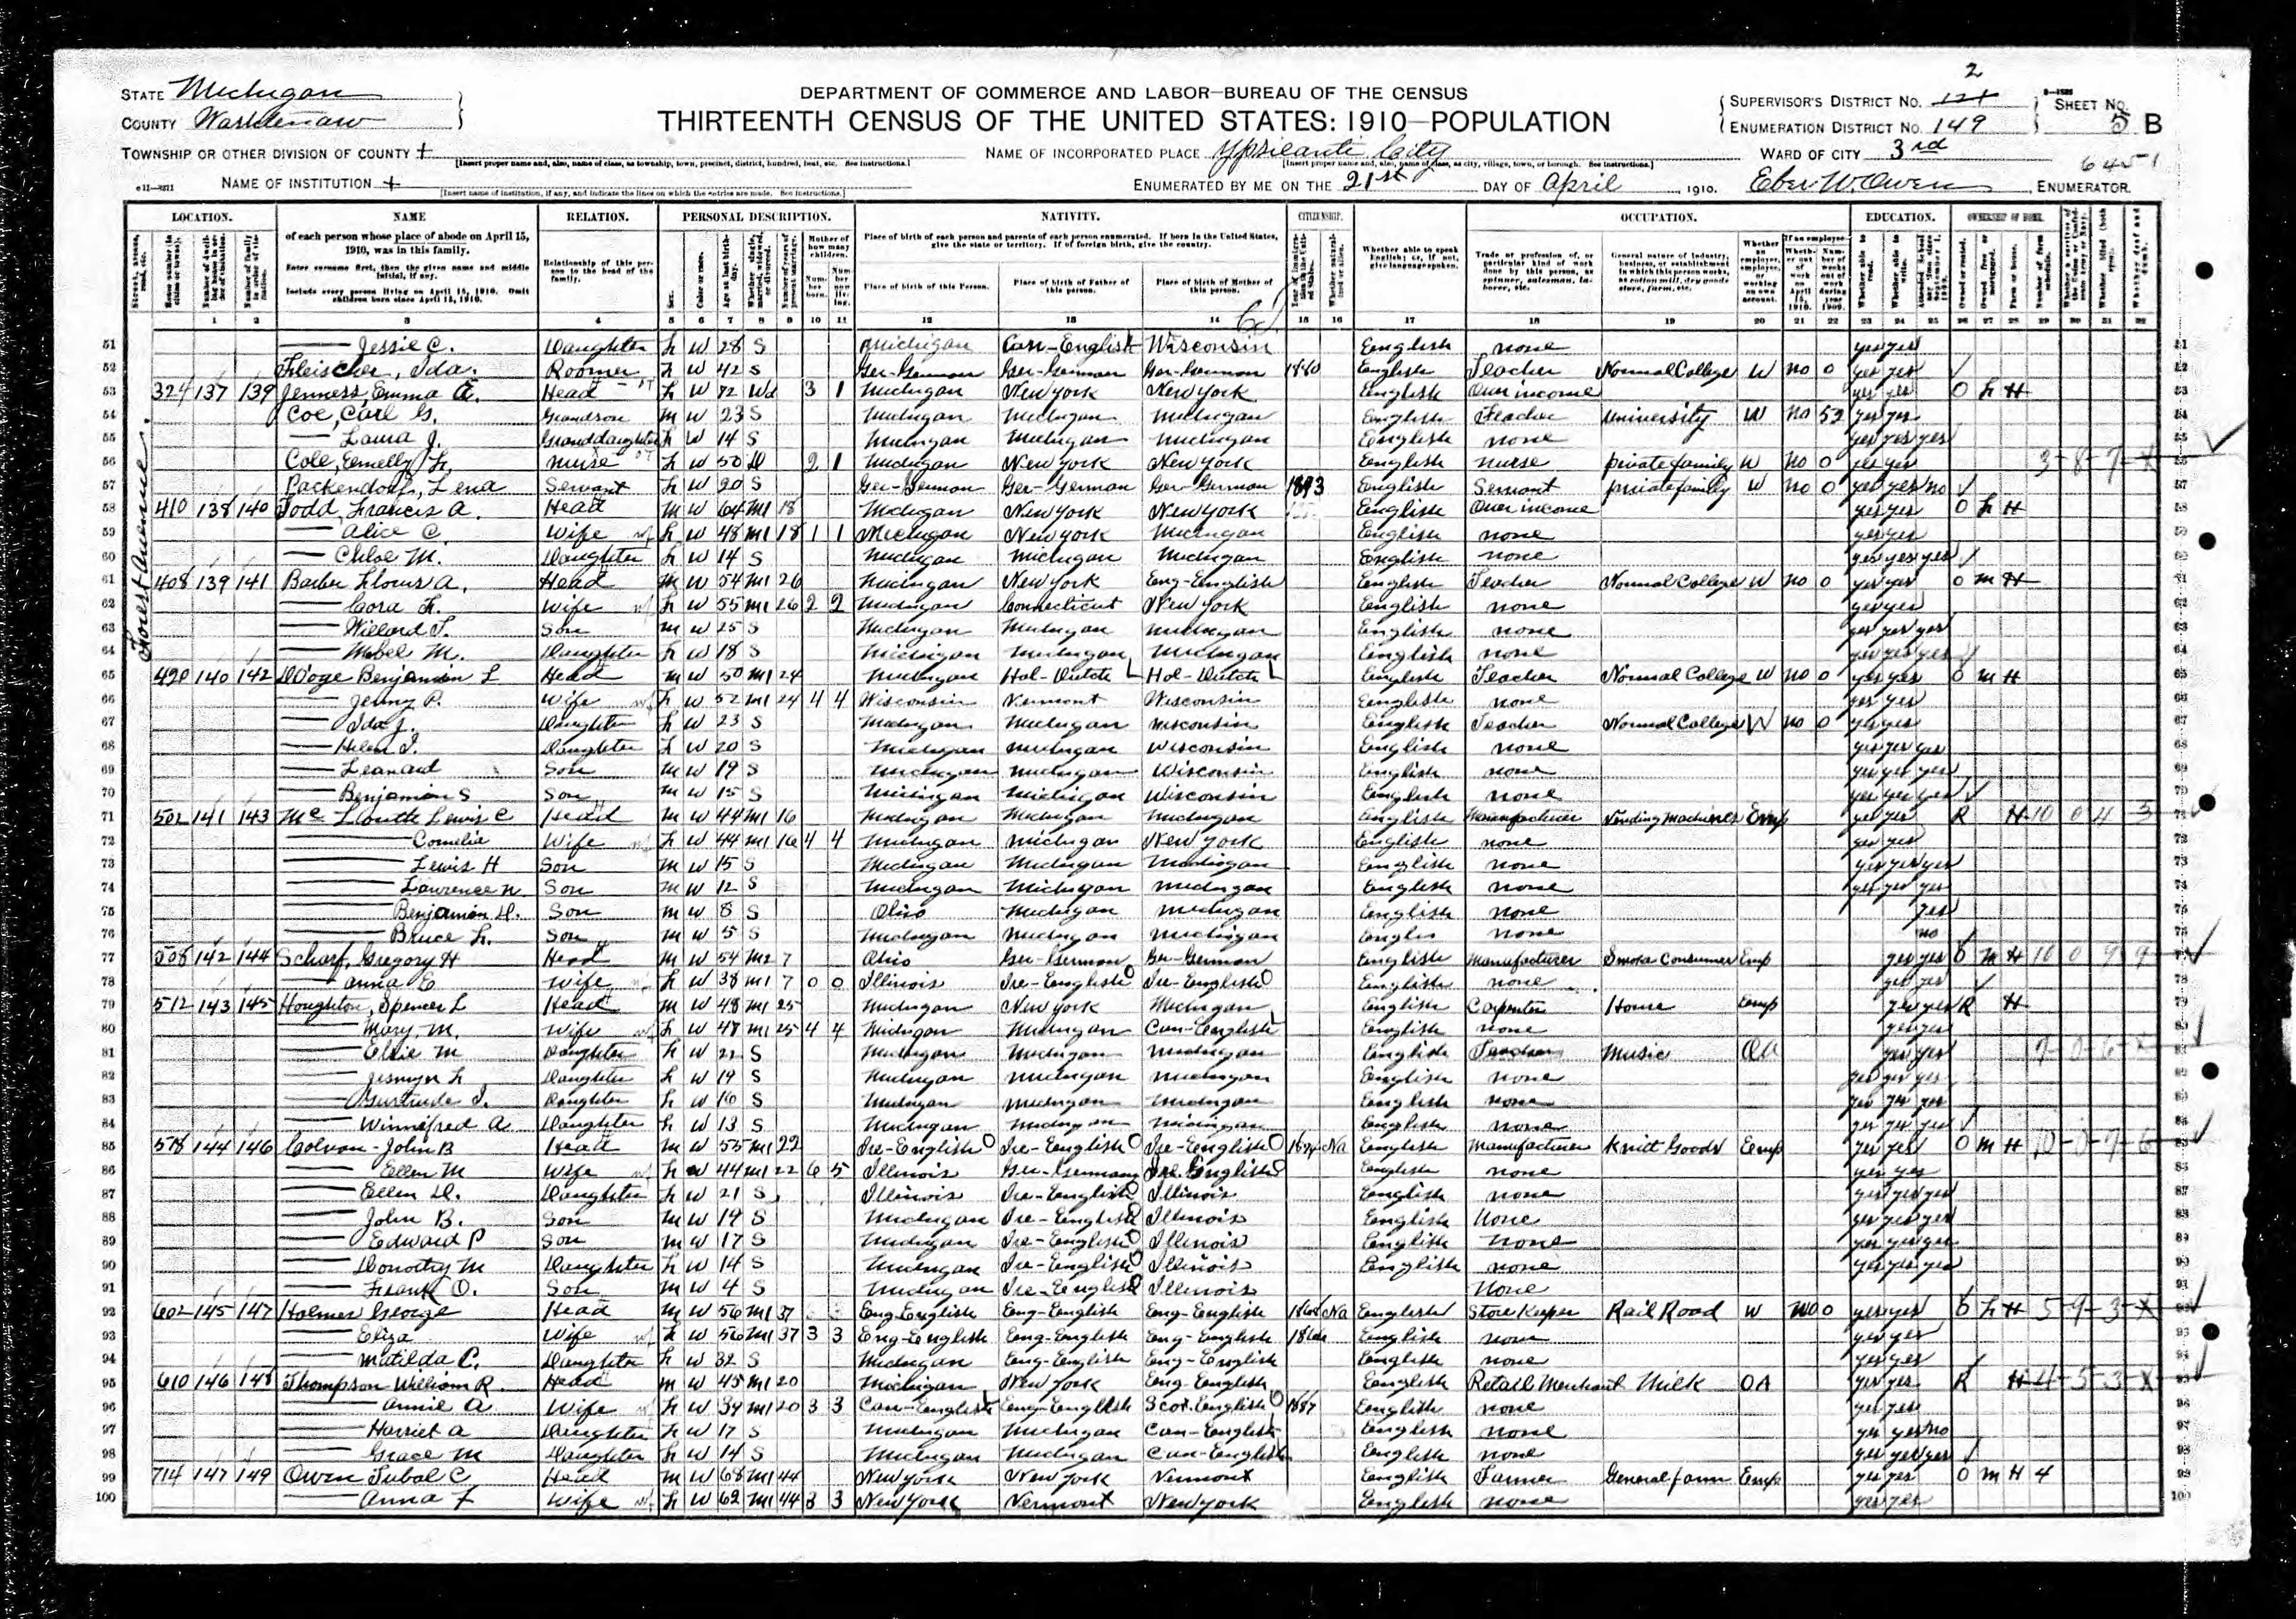 STATE Michigan
COUNTY Washtenaw
TOWNSHIP OR OTHER DIVISION OF COUNTY +
[Insert proper name and, also, name of class, as township, town, precinct, district, hundred, beat, etc. See instructions.]
NAME OF INSTITUTION +
[Insert name of institution, if any, and indicate the lines on which the entries are made. See instructions.]
DEPARTMENT OF COMMERCE AND LABOR—BUREAU OF THE CENSUS
THIRTEENTH CENSUS OF THE UNITED STATES: 1910—POPULATION
NAME OF INCORPORATED PLACE Ypsilanti City
[Insert proper name and, also, name of class, as city, village, town, or borough. See instructions.]
ENUMERATED BY ME ON THE 21st DAY OF April, 1910. Eber W. Owen, ENUMERATOR.
2
SUPERVISOR'S DISTRICT No. 121
ENUMERATION DISTRICT No. 149
SHEET No. 5 B
WARD OF CITY 3rd
6451
LOCATION. NAME RELATION. PERSONAL DESCRIPTION. NATIVITY. CITIZENSHIP. OCCUPATION. EDUCATION. OWNERSHIP OF HOME.
of each person whose place of abode on April 15, 1910, was in this family.
Enter surname first, then the given name and middle initial, if any.
Include every person living on April 15, 1910. Omit children born since April 15, 1910.
Relationship of this person to the head of the family.
Mother of how many children.
Place of birth of each person and parents of each person enumerated. If born in the United States, give the state or territory. If of foreign birth, give the country.
Place of birth of this Person. Place of birth of Father of this person. Place of birth of Mother of this person.
Whether able to speak English; or, if not, give language spoken.
Trade or profession of, or particular kind of work done by this person, as spinner, salesman, laborer, etc.
General nature of industry, business, or establishment in which this person works, as cotton mill, dry goods store, farm, etc.
Whether an employer, employee, or working on own account.
1 2 3 4 5 6 7 8 9 10 11 12 13 14 15 16 17 18 19 20 21 22 23 24 25 26 27 28 29 30 31 32
Forest Avenue.
51 Jessie C. Daughter F W 28 S Michigan Can-English Wisconsin English none yes yes
52 Fleischer, Ida. Roomer F W 42 S Ger-German Ger-German Ger-German 1880 English Teacher Normal College W no 0 yes yes
53 324 137 139 Jenness, Emma A. Head F W 72 Wd 3 1 Michigan New York New York English Own income yes yes O F H
54 Coe, Carl G. Grandson M W 23 S Michigan Michigan Michigan English Teacher University W no 52 yes yes
55 Laura J. Granddaughter F W 14 S Michigan Michigan Michigan English none yes yes yes
56 Cole, Emelly F. Nurse F W 50 D 2 1 Michigan New York New York English nurse private family W no 0 yes yes 3-8-7-X
57 Packendorf, Lena Servant F W 20 S Ger-German Ger-German Ger-German 1893 English Servant private family W no 0 yes yes no
58 410 138 140 Todd, Francis A. Head M W 64 M1 18 Michigan New York New York English Own income yes yes O F H
59 Alice C. Wife F W 48 M1 18 1 1 Michigan New York Michigan English none yes yes
60 Chloe M. Daughter F W 14 S Michigan Michigan Michigan English none yes yes yes
61 408 139 141 Barbe Flouis A. Head M W 54 M1 26 Michigan New York Eng-English English Teacher Normal College W no 0 yes yes O M H
62 Cora F. Wife F W 55 M1 26 2 2 Michigan Connecticut New York English none yes yes
63 Willard T. Son M W 25 S Michigan Michigan Michigan English none yes yes yes
64 Mabel M. Daughter F W 18 S Michigan Michigan Michigan English none yes yes yes
65 420 140 142 D'Ooge Benjamin L Head M W 50 M1 24 Michigan Hol-Dutch Hol-Dutch English Teacher Normal College W no 0 yes yes O M H
66 Jenny P. Wife F W 52 M1 24 4 4 Wisconsin Vermont Wisconsin English none yes yes
67 Ida J. Daughter F W 23 S Michigan Michigan Wisconsin English Teacher Normal College W no 0 yes yes
68 Helen I. Daughter F W 20 S Michigan Michigan Wisconsin English none yes yes yes
69 Leanard Son M W 19 S Michigan Michigan Wisconsin English none yes yes yes
70 Benjamin S Son M W 15 S Michigan Michigan Wisconsin English none yes yes yes
71 502 141 143 Mc Louth Lewis C Head M W 44 M1 16 Michigan Michigan Michigan English Manufacturer Vending Machines Emp yes yes R H 10 0 4 3
72 Cornelia Wife F W 44 M1 16 4 4 Michigan Michigan New York English none yes yes
73 Lewis H Son M W 15 S Michigan Michigan Michigan English none yes yes yes
74 Lawrence N. Son M W 12 S Michigan Michigan Michigan English none yes yes yes
75 Benjamin D. Son M W 8 S Ohio Michigan Michigan English none yes
76 Bruce F. Son M W 5 S Michigan Michigan Michigan Englis none no
77 508 142 144 Scharf, Gregory H Head M W 54 M2 7 Ohio Ger-German Ger-German English Manufacturer Smoke Consumer Emp yes yes O M H 10 0 9 9
78 Anna E Wife F W 38 M1 7 0 0 Illinois Ire-English Ire-English English none yes yes
79 512 143 145 Houghton, Spencer L Head M W 48 M1 25 Michigan New York Michigan English Carpenter House Emp yes yes R H
80 Mary M. Wife F W 47 M1 25 4 4 Michigan Michigan Can-English English none yes yes
81 Elsie M Daughter F W 22 S Michigan Michigan Michigan English Teacher Music OA yes yes
82 Jesmyn F Daughter F W 19 S Michigan Michigan Michigan English none yes yes yes
83 Gurtrude I. Daughter F W 16 S Michigan Michigan Michigan English none yes yes yes
84 Winnifred A Daughter F W 13 S Michigan Michigan Michigan English none yes yes yes
85 518 144 146 Colvan - John B Head M W 55 M1 22 Ire-English Ire-English Ire-English Na English Manufacturer Knitt Goods Emp yes yes O M H 10-0-9-6
86 Ellen M Wife F W 44 M1 22 6 5 Illinois Ger-Germany Ire English English none yes yes
87 Ellen D. Daughter F W 21 S Illinois Ire-English Illinois English none yes yes yes
88 John B. Son M W 19 S Michigan Ire-English Illinois English None yes yes yes
89 Edward P Son M W 17 S Michigan Ire-English Illinois English None yes yes yes
90 Dorothy M Daughter F W 14 S Michigan Ire-English Illinois English none yes yes yes
91 Frank O. Son M W 4 S Michigan Ire-English Illinois None
92 602 145 147 Holmes George Head M W 56 M1 37 Eng English Eng-English Eng-English Na English Store Keeper Rail Road W no 0 yes yes O F H 5-9-3-X
93 Eliza Wife F W 56 M1 37 3 3 Eng-English Eng-English Eng-English English none yes yes
94 Matilda C. Daughter F W 32 S Michigan Eng-English Eng-English English none yes yes
95 610 146 148 Thompson William R. Head M W 45 M1 20 Michigan New York Eng-English English Retail Merchant Milk OA yes yes R H 4-5-3-X
96 Annie A Wife F W 39 M1 20 3 3 Can-English Eng-English Scot. English 1887 English none yes yes
97 Harriet A Daughter F W 17 S Michigan Michigan Can-English English none yes yes no
98 Grace M Daughter F W 14 S Michigan Michigan Can-English English none yes yes yes
99 714 147 149 Owen Tubal C Head M W 68 M1 44 New York New York Vermont English Farmer General farm Emp yes yes O M H 4
100 Anna F Wife F W 62 M1 44 3 3 New York Vermont New York English none yes yes